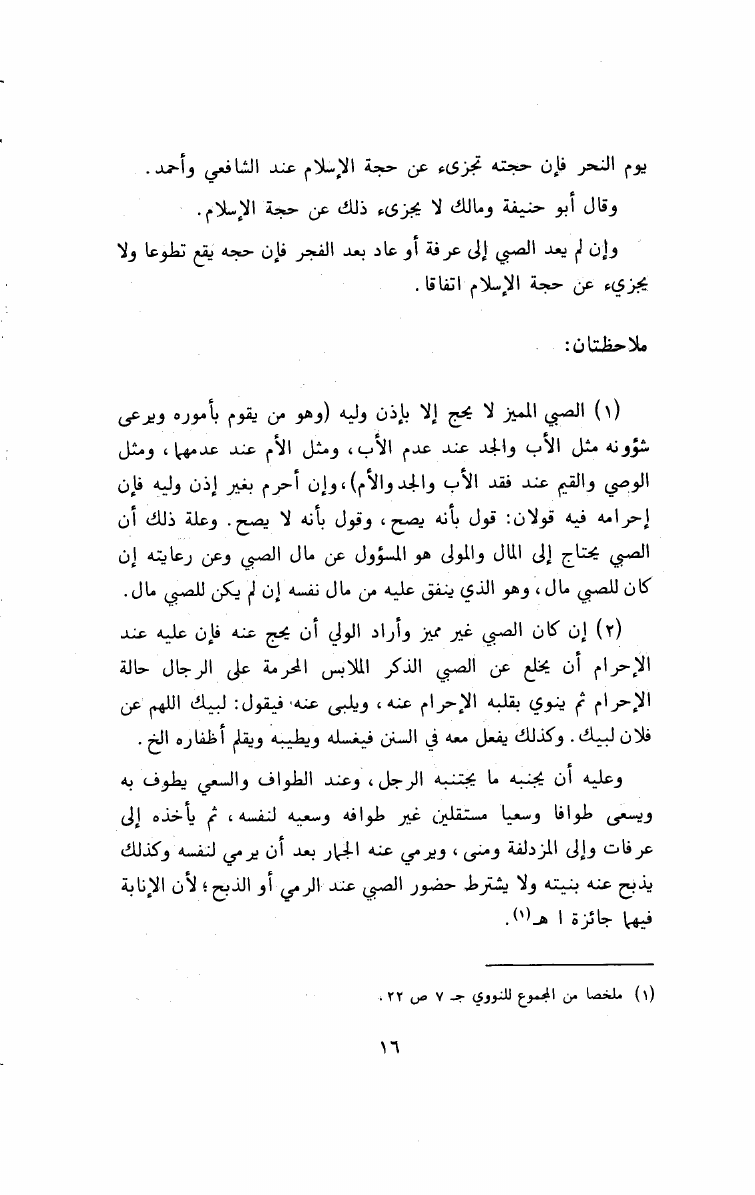 يوم النحر فإن حجته تجزىء عن حجة الإسلام عند الشافعي وأحمد.
وقال أبو حنيفة ومالك لا يجزىء ذلك عن حجة الإسلام.
وإن لم يعد الصبي إلى عرفة أو عاد بعد الفجر فإن حجه يقع تطوعا ولا
يجزيء عن حجة الإسلام اتفاقا.
ملاحظتان:
(١) الصبي المميز لا يحج إلا بإذن وليه (وهو من يقوم بأموره ويرعى
شؤونه مثل الأب والجد عند عدم الأب، ومثل الأم عند عدمهما، ومثل
الوصي والقيم عند فقد الأب والجد والأم)، وإن أحرم بغير إذن وليه فإن
إحرامه فيه قولان: قول بأنه يصح، وقول بأنه لا يصح. وعلة ذلك أن
الصبي يحتاج إلى المال والمولى هو المسؤول عن مال الصبي وعن رعايته إن
كان للصبي مال، وهو الذي ينفق عليه من مال نفسه إن لم يكن للصبي مال.
(٢) إن كان الصبي غير مميز وأراد الولي أن يحج عنه فإن عليه عند
الإحرام أن يخلع عن الصبي الذكر الملابس المحرمة على الرجال حالة
الإحرام ثم ينوي بقلبه الإحرام عنه، ويلبى عنه فيقول: لبيك اللهم عن
فلان لبيك. وكذلك يفعل معه في السنن فيغسله ويطيبه ويقلم أظفاره الخ.
وعليه أن يجنبه ما يجتنبه الرجل، وعند الطواف والسعي يطوف به
ويسعى طوافا وسعيا مستقلين غير طوافه وسعيه لنفسه، ثم يأخذه إلى
عرفات وإلى المزدلفة ومنى، ويرمي عنه الجمار بعد أن يرمي لنفسه وكذلك
يذبح عنه بنيته ولا يشترط حضور الصبي عند الرمي أو الذبح؛ لأن الإنابة
فيهما جائزة ا هـ(١).
(١) ملخصا من المجموع للنووي جـ ٧ ص ٢٢.
١٦